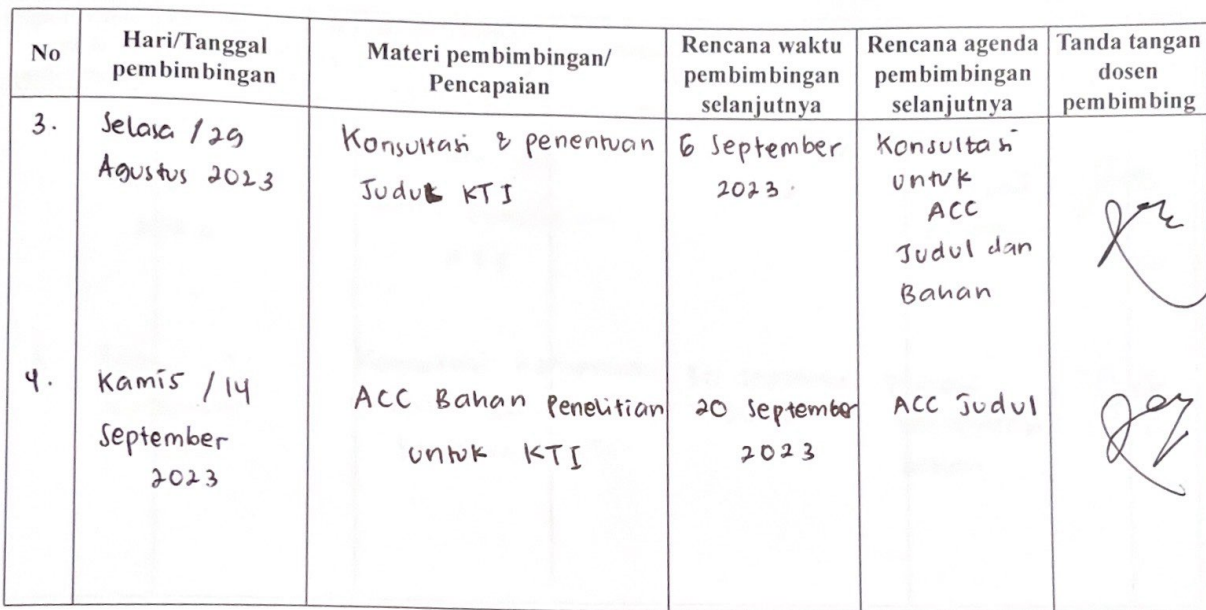 No
Hari/Tanggal
pembimbingan
Materi pembimbingan/
Pencapaian
Rencana waktu
pembimbingan
selanjutnya
Rencana agenda
pembimbingan
selanjutnya
Tanda tangan
dosen
pembimbing
3.
Selasa / 29
Agustus 2023
Konsultasi & penentuan
Judul KTI
6 September
2023.
Konsultasi
untuk
ACC
Judul dan
Bahan
4.
Kamis / 14
September
2023
ACC Bahan Penelitian
untuk KTI
20 September
2023
ACC Judul